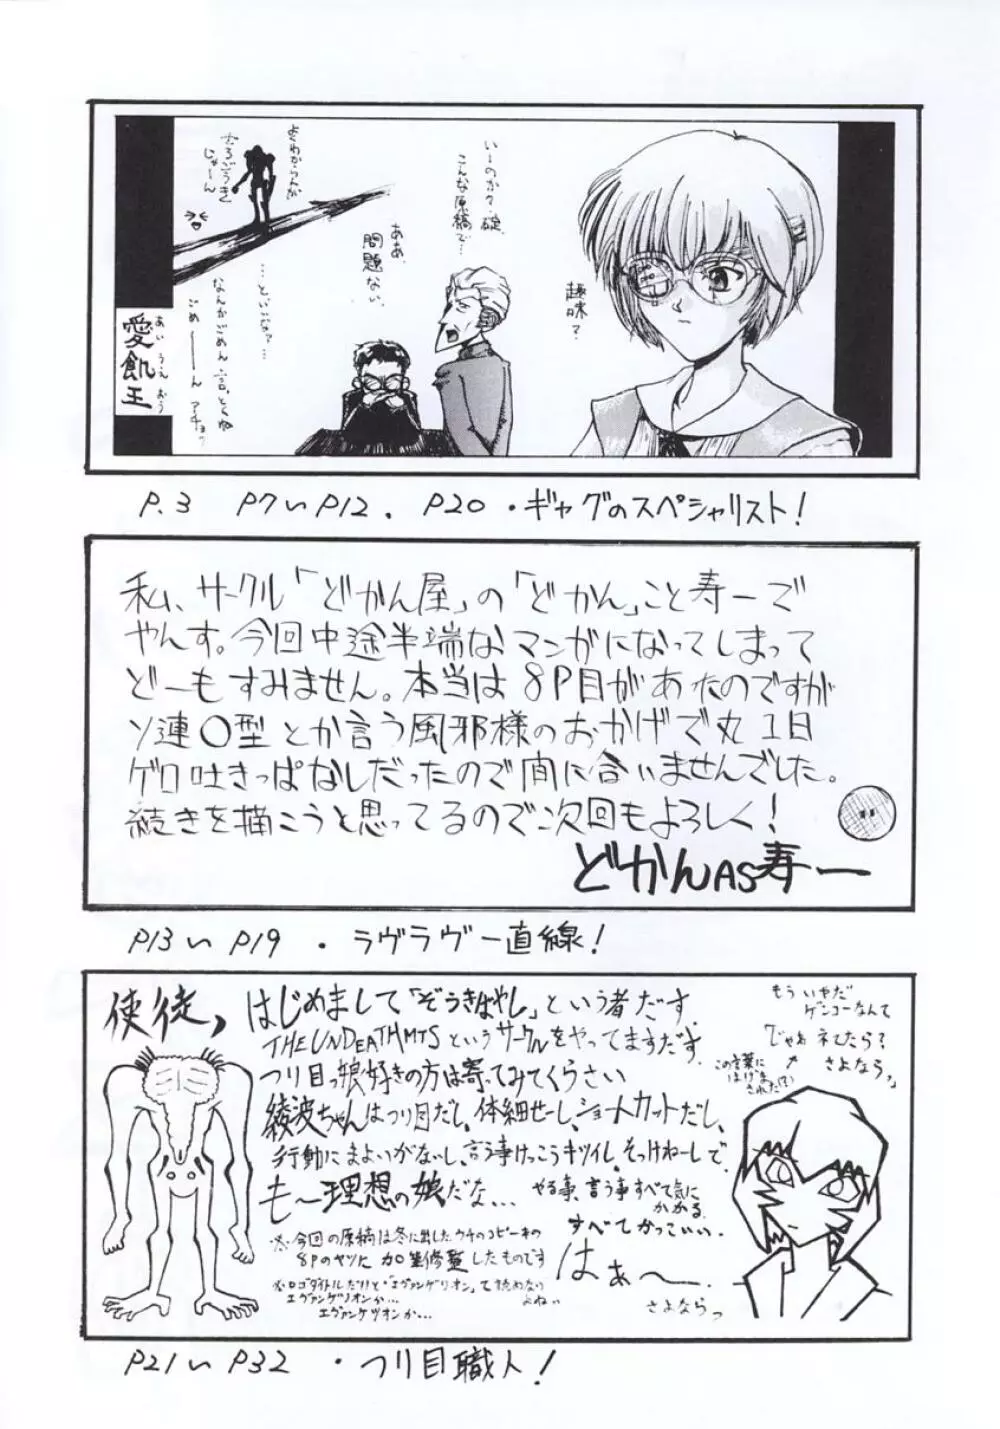 いーのか?碇
こんな原稿で…
ああ
問題ない。
趣味?
よくわからんが
じゃーん
…といいなァ…
なんかごめん、言っとくね
ごめ〜〜ん
愛飢王
あい うえ おう
P.3 P7〜P12. P20・ギャグのスペシャリスト!
私、サークル「どかん屋」の「どかん」こと寿一で
やんす。今回中途半端なマンガになってしまって
どーもすみません。本当は8P目があったのですが
ソ連〇型とか言う風邪様のおかげで丸1日
ゲロ吐きっぱなしだったので間に合いませんでした。
続きを描こうと思ってるので次回もよろしく!
どかんAS寿一
P13〜P19・ラヴラヴ一直線!
使徒,
はじめまして「ぞうきばやし」という者だす
THE UNDEATHMTSというサークルをやってますだす.
つり目っ娘好きの方は寄ってみてくうさい
綾波ちゃんはつり目だし、体細せーし、ショートカットだし、
行動にまよいがないし、言う事けっこうキツイし、そっけねーしで
も〜理想の娘だな… やる事、言う事すべて気に
かかる.
すべてかっこいい.
はぁ〜.
※今回の原稿は冬に出したウチのコピー本の
8Pのヤツに加筆修整したものです
※ロゴタイトルだけど"エヴァンゲリオン"て読めない
よねぃ
エヴァンゲリオンか…
エヴァンケツオンか…
もういやだ
ゲンコーなんて
じゃあ ネてたら?
さよならっ
この言葉に
はげま
された(?)
さよならっ
P21〜P32・つり目職人!